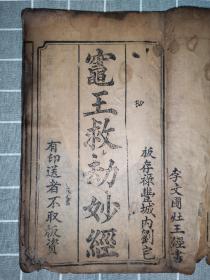 李文國灶王經書
板存祿豐城內劉宅
竈王救劫妙經
有印送者不取板資